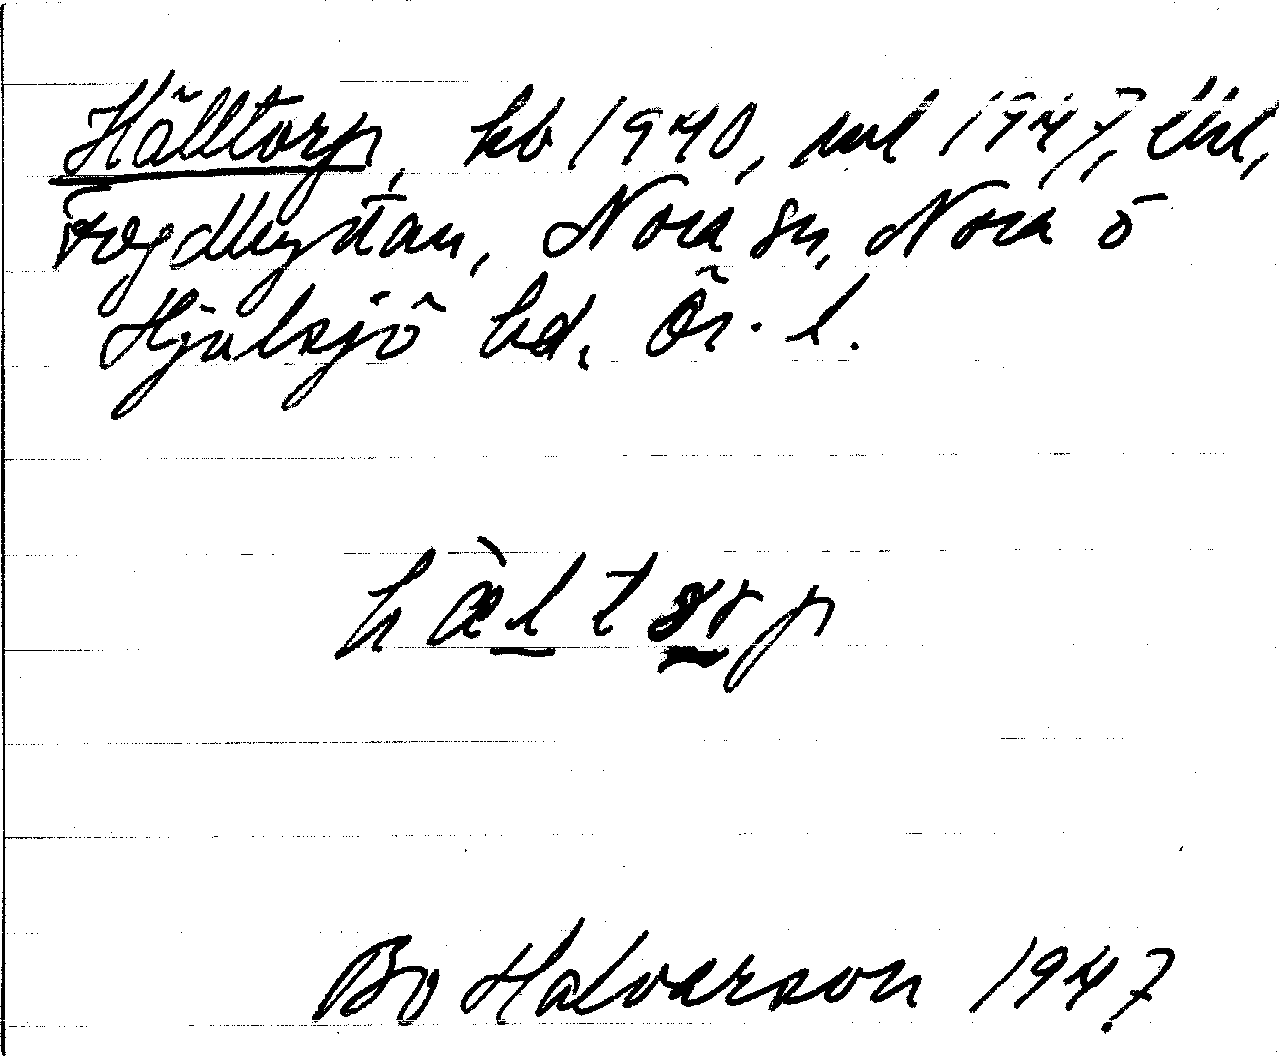 Hälltorp, kb 1940, uml 1947, lht,
Fogdhyttan, Nora sn, Nora o
Hjulsjö hd. Ör. l.
hæ̀ltorp
Bo Halvarson 1947